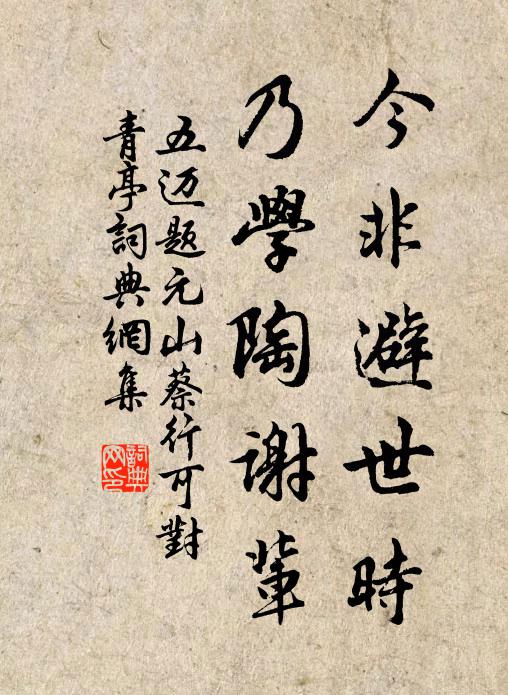 今非避世時
乃學陶谢輩
五迈题元山蔡行可對
青亭詞典網集
詞典網印